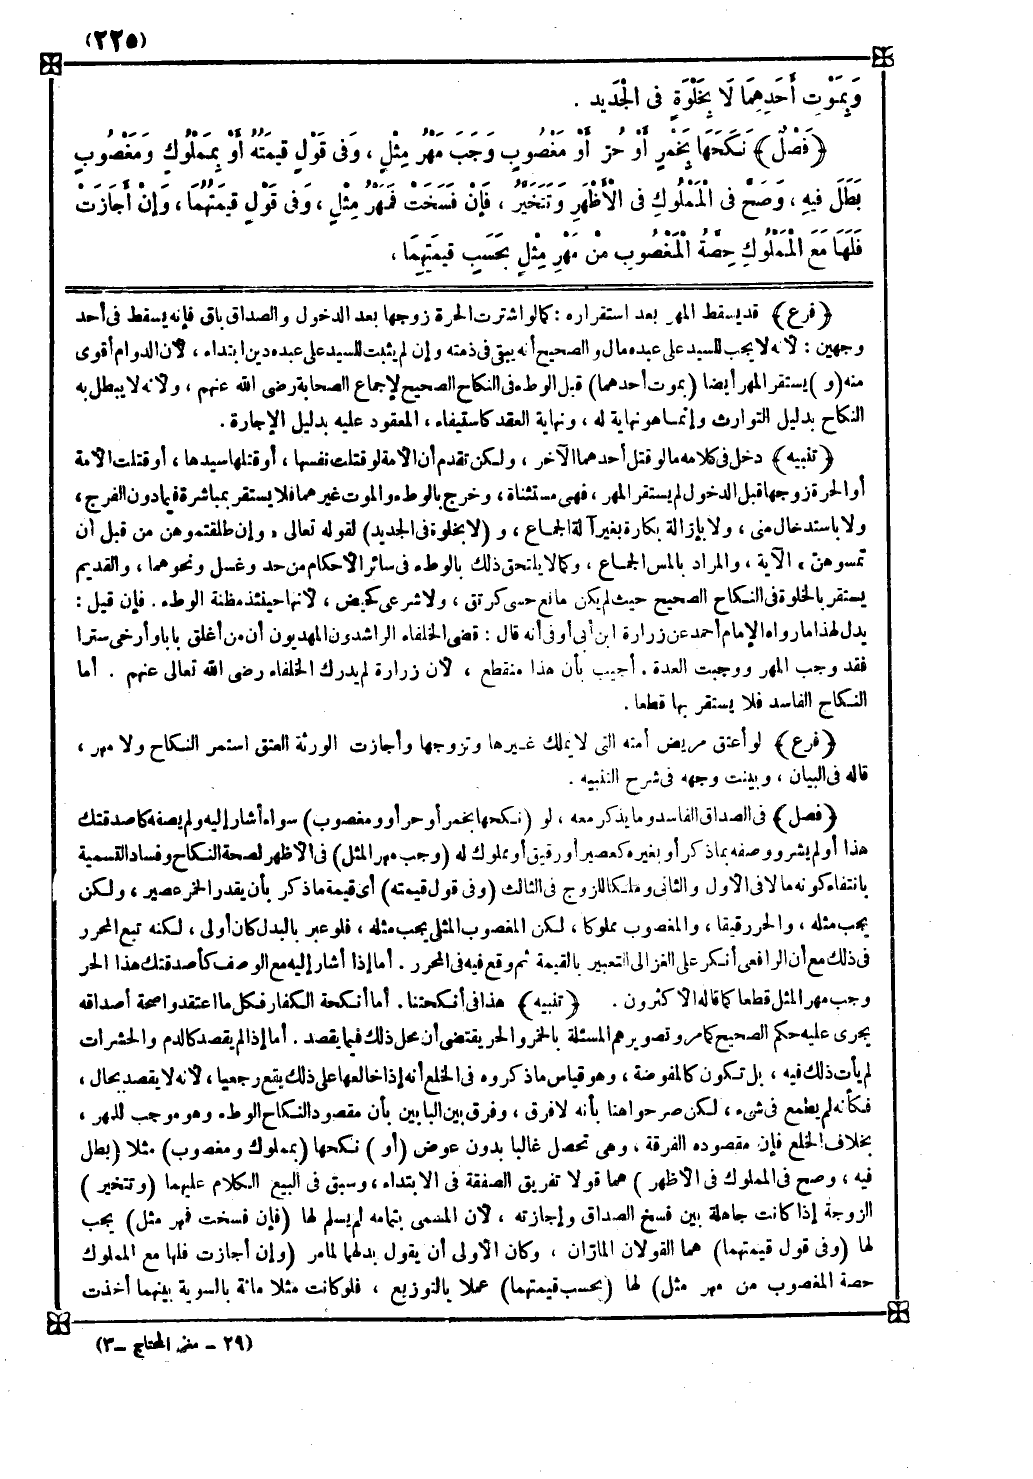 (٢٢٥)
وَبِمَوْتِ أَحَدِهِمَا لَا بِخَلْوَةٍ فِى الْجَدِيدِ .
﴿فَصْلٌ﴾ نَكَحَهَا بِخَمْرٍ أَوْ حُرٍّ أَوْ مَغْصُوبٍ وَجَبَ مَهْرُ مِثْلٍ ، وَفِى قَوْلٍ قِيمَتُهُ أَوْ بِمَمْلُوكٍ وَمَغْصُوبٍ
بَطَلَ فِيهِ ، وَصَحَّ فِى الْمَمْلُوكِ فِى الْأَظْهَرِ وَتَتَخَيَّرُ ، فَإِنْ فَسَخَتْ فَمَهْرُ مِثْلٍ ، وَفِى قَوْلٍ قِيمَتُهُمَا ، وَإِنْ أَجَازَتْ
فَلَهَا مَعَ الْمَمْلُوكِ حِصَّةُ الْمَغْصُوبِ مِنْ مَهْرِ مِثْلٍ بِحَسَبِ قِيمَتِهِمَا ،
﴿فرع﴾ قد يسقط المهر بعد استقراره : كما لو اشترت الحرة زوجها بعد الدخول والصداق باق فإنه يسقط فى أحد
وجهين : لأنه لا يجب للسيد على عبده مال والصحيح أنه يبقى فى ذمته وإن لم يثبت للسيد على عبده دين ابتداء ، لأن الدوام أقوى
منه (و) يستقر المهر أيضا (بموت أحدهما) قبل الوطء فى النكاح الصحيح لإجماع الصحابة رضى الله عنهم ، ولأنه لا يبطل به
النكاح بدليل التوارث وإنما هو نهاية له ، ونهاية العقد كاستيفاء ، المعقود عليه بدليل الإجارة .
﴿تنبيه﴾ دخل فى كلامه ما لو قتل أحدهما الآخر ، ولكن تقدم أن الأمة لو قتلت نفسها ، أو قتلها سيدها ، أو قتلت الأمة
أو الحرة زوجها قبل الدخول لم يستقر المهر ، فهى مستثناة ، وخرج بالوطء والموت غيرهما فلا يستقر بمباشرة فيما دون الفرج ،
ولا باستدخال منى ، ولا بإزالة بكارة بغير آلة الجماع ، و (لا بخلوة فى الجديد) لقوله تعالى « وإن طلقتموهن من قبل أن
تمسوهن » الآية ، والمراد بالمس الجماع ، وكما لا يلتحق ذلك بالوطء فى سائر الأحكام من حد وغسل ونحوهما ، والقديم
يستقر بالخلوة فى النكاح الصحيح حيث لم يكن مانع حسى كرتق ، ولا شرعى كحيض ، لأنها حينئذ مظنة الوطء . فإن قيل :
يدل لهذا ما رواه الإمام أحمد عن زرارة ابن أبى أوفى أنه قال : قضى الخلفاء الراشدون المهديون أن من أغلق بابا وأرخى سترا
فقد وجب المهر ووجبت العدة . أجيب بأن هذا منقطع ، لأن زرارة لم يدرك الخلفاء رضى الله تعالى عنهم . أما
النكاح الفاسد فلا يستقر بها قطعا .
﴿فرع﴾ لو أعتق مريض أمته التى لا يملك غيرها وتزوجها وأجازت الورثة العتق استمر النكاح ولا مهر ،
قاله فى البيان ، وبينت وجهه فى شرح التنبيه .
﴿فصل﴾ فى الصداق الفاسد وما يذكر معه ، لو (نكحها بخمر أو حر أو مغصوب) سواء أشار إليه ولم يصفه كأصدقتك
هذا أو لم يشر ووصفه بما ذكر أو بغيره كعصير أو رقيق أو مملوك له (وجب مهر المثل) فى الأظهر لصحة النكاح وفساد التسمية
بانتفاء كونه مالا فى الأول والثانى وملكا للزوج فى الثالث (وفى قول قيمته) أى قيمة ما ذكر بأن يقدر الخمر عصير ، ولكن
يجب مثله ، والحر رقيقا ، والمغصوب مملوكا ، لكن المغصوب المثلى يجب مثله ، فلو عبر بالبدل كان أولى ، لكنه تبع المحرر
فى ذلك مع أن الرافعى أنكر على الغزالى التعبير بالقيمة ثم وقع فيه فى المحرر . أما إذا أشار إليه مع الوصف كأصدقتك هذا الحر
وجب مهر المثل قطعا كما قاله الأكثرون . ﴿تنبيه﴾ هذا فى أنكحتنا . أما أنكحة الكفار فكل ما اعتقدوا صحة أصداقه
يجرى عليه حكم الصحيح كما مر وتصويرهم المسئلة بالخمر والحر يقتضى أن محل ذلك فيما يقصد . أما إذا لم يقصد كالدم والحشرات
لم يأت ذلك فيه ، بل تكون كالمفوضة ، وهو قياس ما ذكروه فى الخلع أنه إذا خالعها على ذلك يقع رجعيا ، لأنه لا يقصد بحال ،
فكأنه لم يطمع فى شىء ، لكن صرحوا هنا بأنه لا فرق ، وفرق بين البابين بأن مقصود النكاح الوطء وهو موجب للمهر ،
بخلاف الخلع فإن مقصوده الفرقة ، وهى تحصل غالبا بدون عوض (أو) نكحها (بمملوك ومغصوب) مثلا (بطل
فيه ، وصح فى المملوك فى الأظهر) هما قولا تفريق الصفقة فى الابتداء ، وسبق فى البيع الكلام عليهما (وتتخير)
الزوجة إذا كانت جاهلة بين فسخ الصداق وإجازته ، لأن المسمى بتمامه لم يسلم لها (فإن فسخت فمهر مثل) يجب
لها (وفى قول قيمتهما) هما القولان المارّان ، وكان الأولى أن يقول بدلهما لما مر (وإن أجازت فلها مع المملوك
حصة المغصوب من مهر مثل) لها (بحسب قيمتهما) عملا بالتوزيع ، فلو كانت مثلا مائة بالسوية بينهما أخذت
(٢٩ - مغنى المحتاج - ٣)